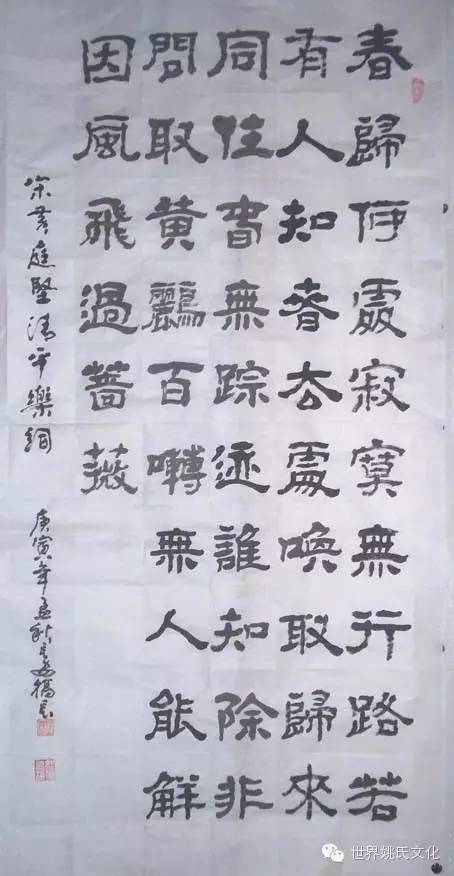 春歸何處寂寞無行路若
有人知春去處喚取歸來
同住春無踪迹誰知除非
問取黃鸝百囀無人能解
因風飛過薔薇
宋黃庭堅清平樂詞
庚寅年孟秋月姚
世界姚氏文化